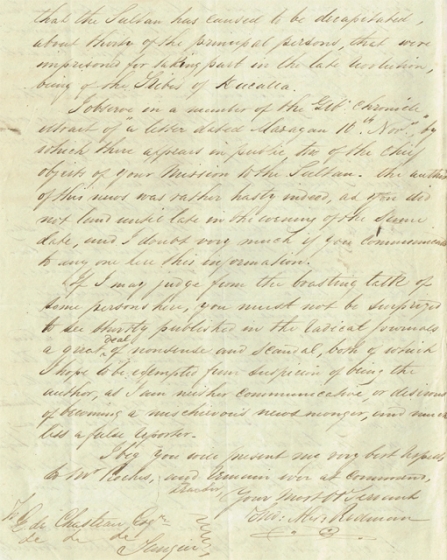 that the Sultan has caused to be decapitated,
about thirty of the principal persons, that were
imprisoned for taking part in the late Revolution,
being of the Tribes of
I observe in a number of the Gib. Chronicle
extract of "a letter dated Mazagan 10th Novr.", by
which there appears in public two of the Chief
objects of your Mission to the Sultan. The author
of this news was rather hasty indeed, as you did
not land until late in the evening of the same
date, and I doubt very much if you communicated
to any one here this information.
If I may judge from the boasting talk of
some persons here, you must not be surprized
to see shortly published in the radical journals
a great deal of nonsense and scandal, both of which
I hope to be exempted from suspicion of being the
author, as I am neither communicative, or desirous
of becoming a mischievous news monger, and much
less a false reporter.
I beg you will present my very best respects
to Mr Roches, and remain ever at command,
Your most Ob. Servant
Alexr. Redman
To
de Chasteau Esqre.
de de de
Tangier,